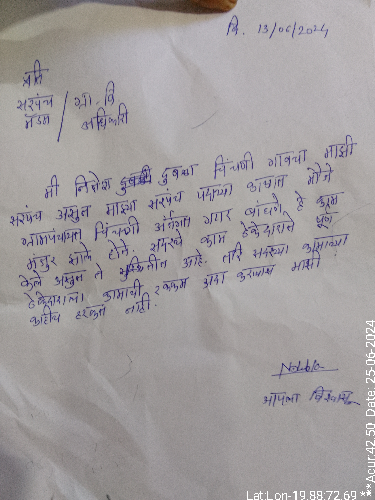 दि. 13/06/2024
प्रति
सरपंच / ग्रा. वि
मॅडम अधिकारी
मी निलेश दुबळा चिंचणी गावचा माझी
सरपंच असुन माझ्या सरपंच पदाच्या काळात मौजे
ग्रामपंचायत चिंचणी अंर्तगत गटार बांधणे हे काम
मंजुर झाले होते. सदरचे काम ठेकेदाराने पूर्ण
केले असुन ते सुस्थितीत आहे. तरि सदरच्या कामाच्या
ठेकेदाराला कामाची रक्कम अदा करण्यास माझी
काहीच हरकत नाही.
आपला विश्वासू
Lat:Lon-19.88:72.69 ***Acur:42.50 Date: 25-06-2024